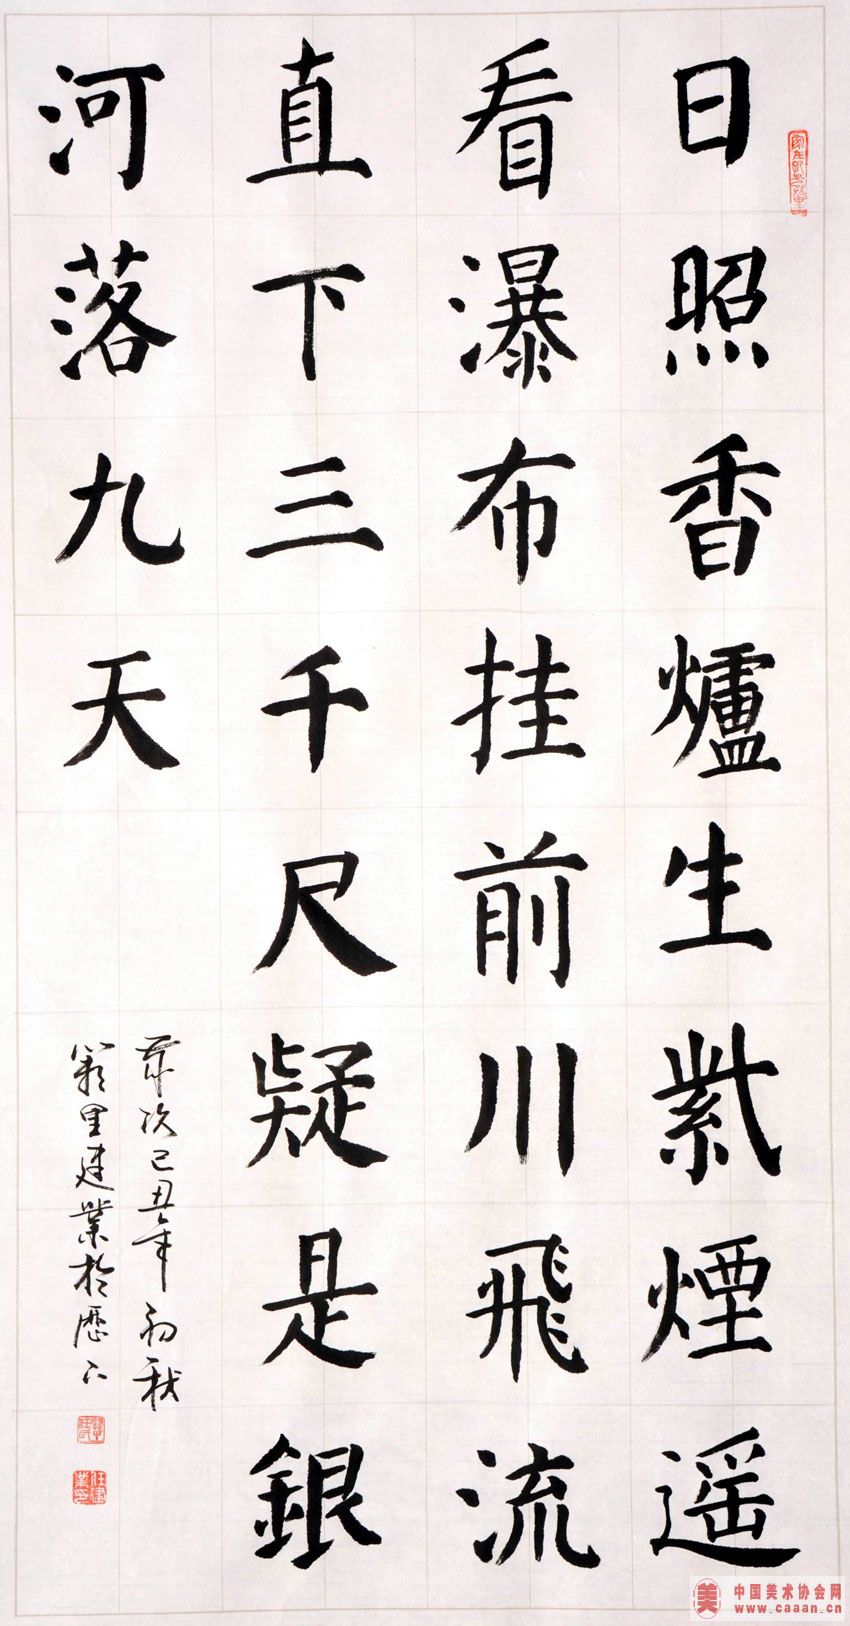 日照香爐生紫煙遥
看瀑布挂前川飛流
直下三千尺疑是銀
河落九天
歲次己丑年初秋
翁里建業於歷下
任建業印
中国美术协会网
www.caaan.cn